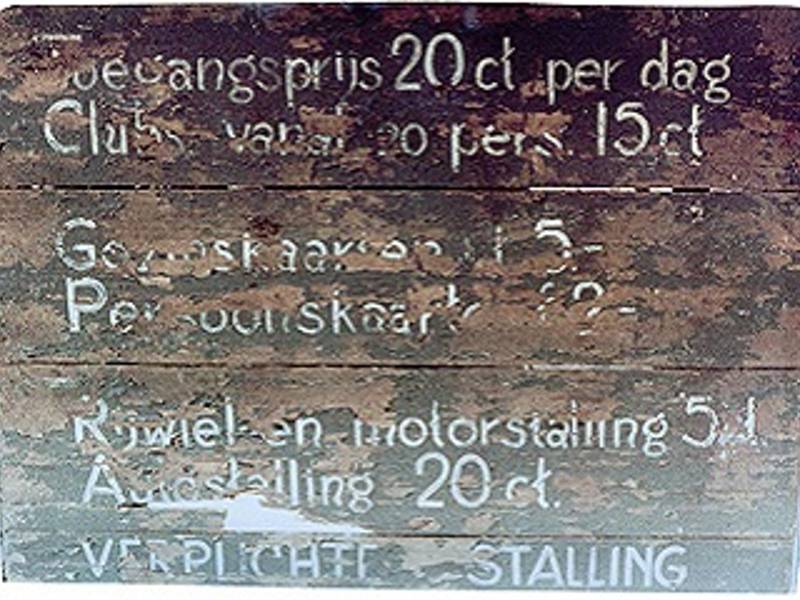 Toegangsprijs 20 ct per dag
Clubs vanaf 20 pers. 15 ct
Gezinskaarten f 5.-
Persoonskaart 2.-
Rijwiel- en motorstalling 5 ct.
Autostalling 20 ct.
VERPLICHTE STALLING